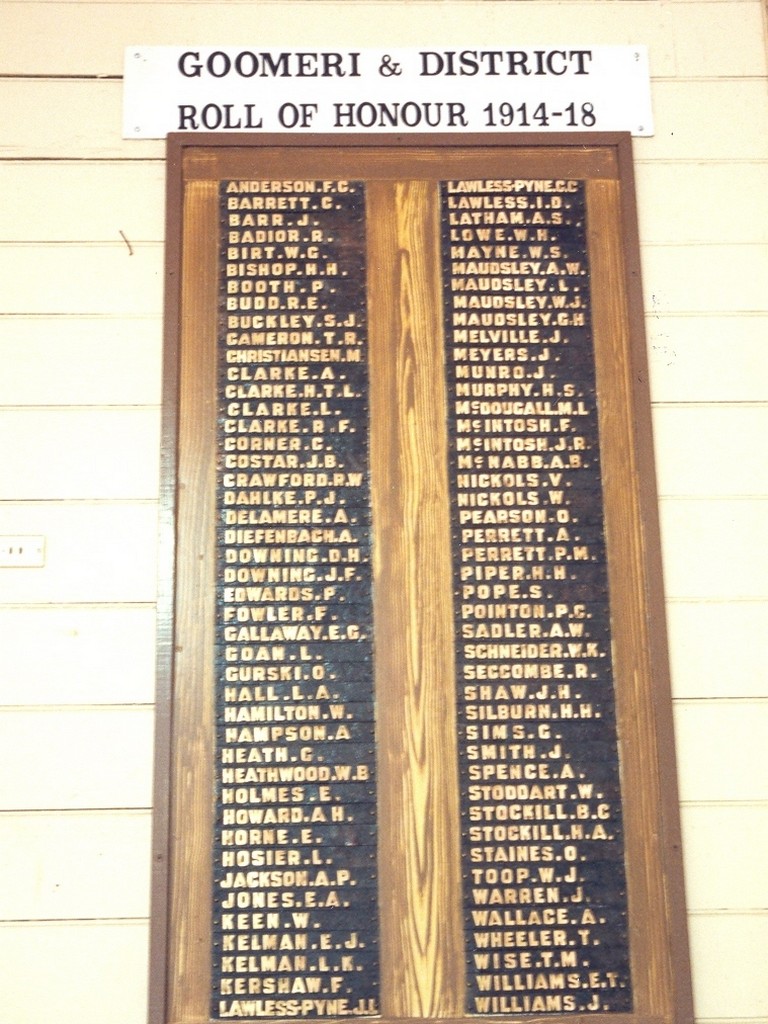 GOOMERI & DISTRICT
ROLL OF HONOUR 1914-18
ANDERSON.F.C.
BARRETT.C.
BARR.J.
BADIOR.R.
BIRT.W.G.
BISHOP.H.H.
BOOTH.P.
BUDD.R.E.
BUCKLEY.S.J.
CAMERON.T.R.
CHRISTIANSEN.M
CLARKE.A.
CLARKE.H.T.L.
CLARKE.L.
CLARKE.R.F.
CORNER.C.
COSTAR.J.B.
CRAWFORD.R.W
DAHLKE.P.J.
DELAMERE.A.
DIEFENBACH.A.
DOWNING.D.H.
DOWNING.J.F.
EDWARDS.P.
FOWLER.F.
GALLAWAY.E.G.
GOAN.L.
GURSKI.O.
HALL.L.A.
HAMILTON.W.
HAMPSON.A
HEATH.G.
HEATHWOOD.W.B
HOLMES.E.
HOWARD.A.H.
HORNE.E.
HOSIER.L.
JACKSON.A.P.
JONES.E.A.
KEEN.W.
KELMAN.E.J.
KELMAN.L.K.
KERSHAW.F.
LAWLESS-PYNE.J.L
LAWLESS-PYNE.C.C
LAWLESS.I.D.
LATHAM.A.S.
LOWE.W.H.
MAYNE.W.S.
MAUDSLEY.A.W.
MAUDSLEY.L.
MAUDSLEY.W.J.
MAUDSLEY.G.H
MELVILLE.J.
MEYERS.J.
MUNRO.J.
MURPHY.H.S.
McDOUGALL.M.L
McINTOSH.F.
McINTOSH.J.R.
McNABB.A.B.
NICKOLS.V.
NICKOLS.W.
PEARSON.O.
PERRETT.A.
PERRETT.P.M.
PIPER.H.H.
POPE.S.
POINTON.P.C.
SADLER.A.W.
SCHNEIDER.W.K.
SECCOMBE.R.
SHAW.J.H.
SILBURN.H.H.
SIMS.C.
SMITH.J.
SPENCE.A.
STODDART.W.
STOCKILL.B.C
STOCKILL.H.A.
STAINES.O.
TOOP.W.J.
WARREN.J.
WALLACE.A.
WHEELER.T.
WISE.T.M.
WILLIAMS.E.T.
WILLIAMS.J.